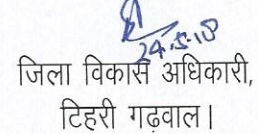 24.5.18
जिला विकास अधिकारी,
टिहरी गढ़वाल।